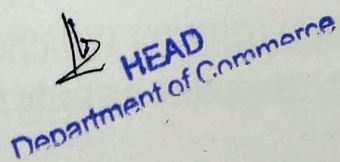 HEAD
Department of Commerce